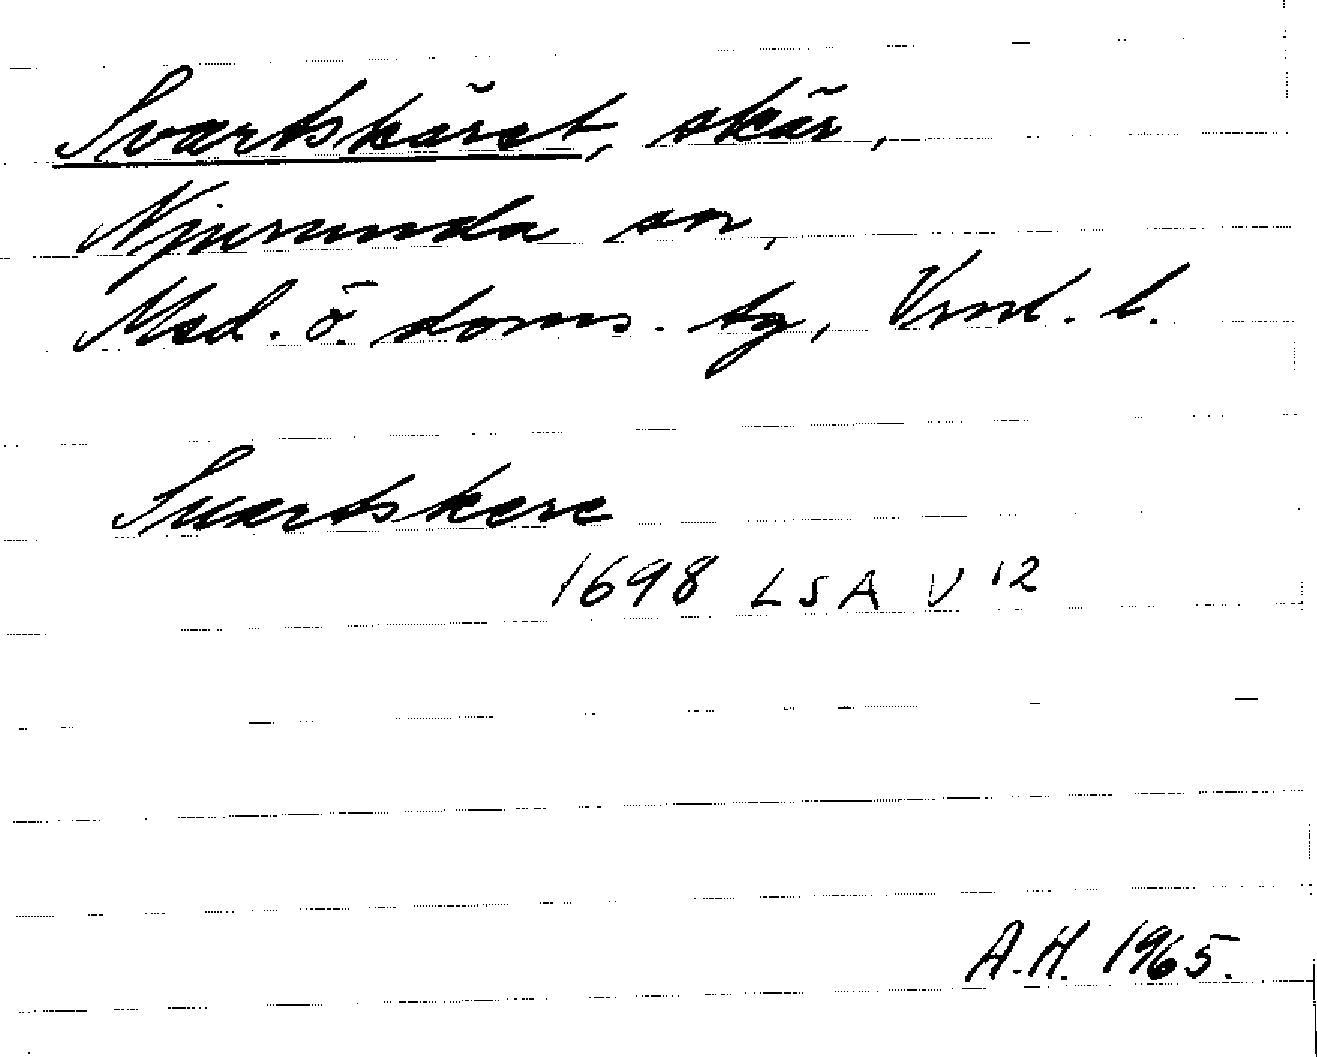 Svartskäret, skär,
Njurunda sn,
Med. ö. doms. tg, Vnrl. l.
Suartskere
1698 LSA V 12
A.H. 1965.